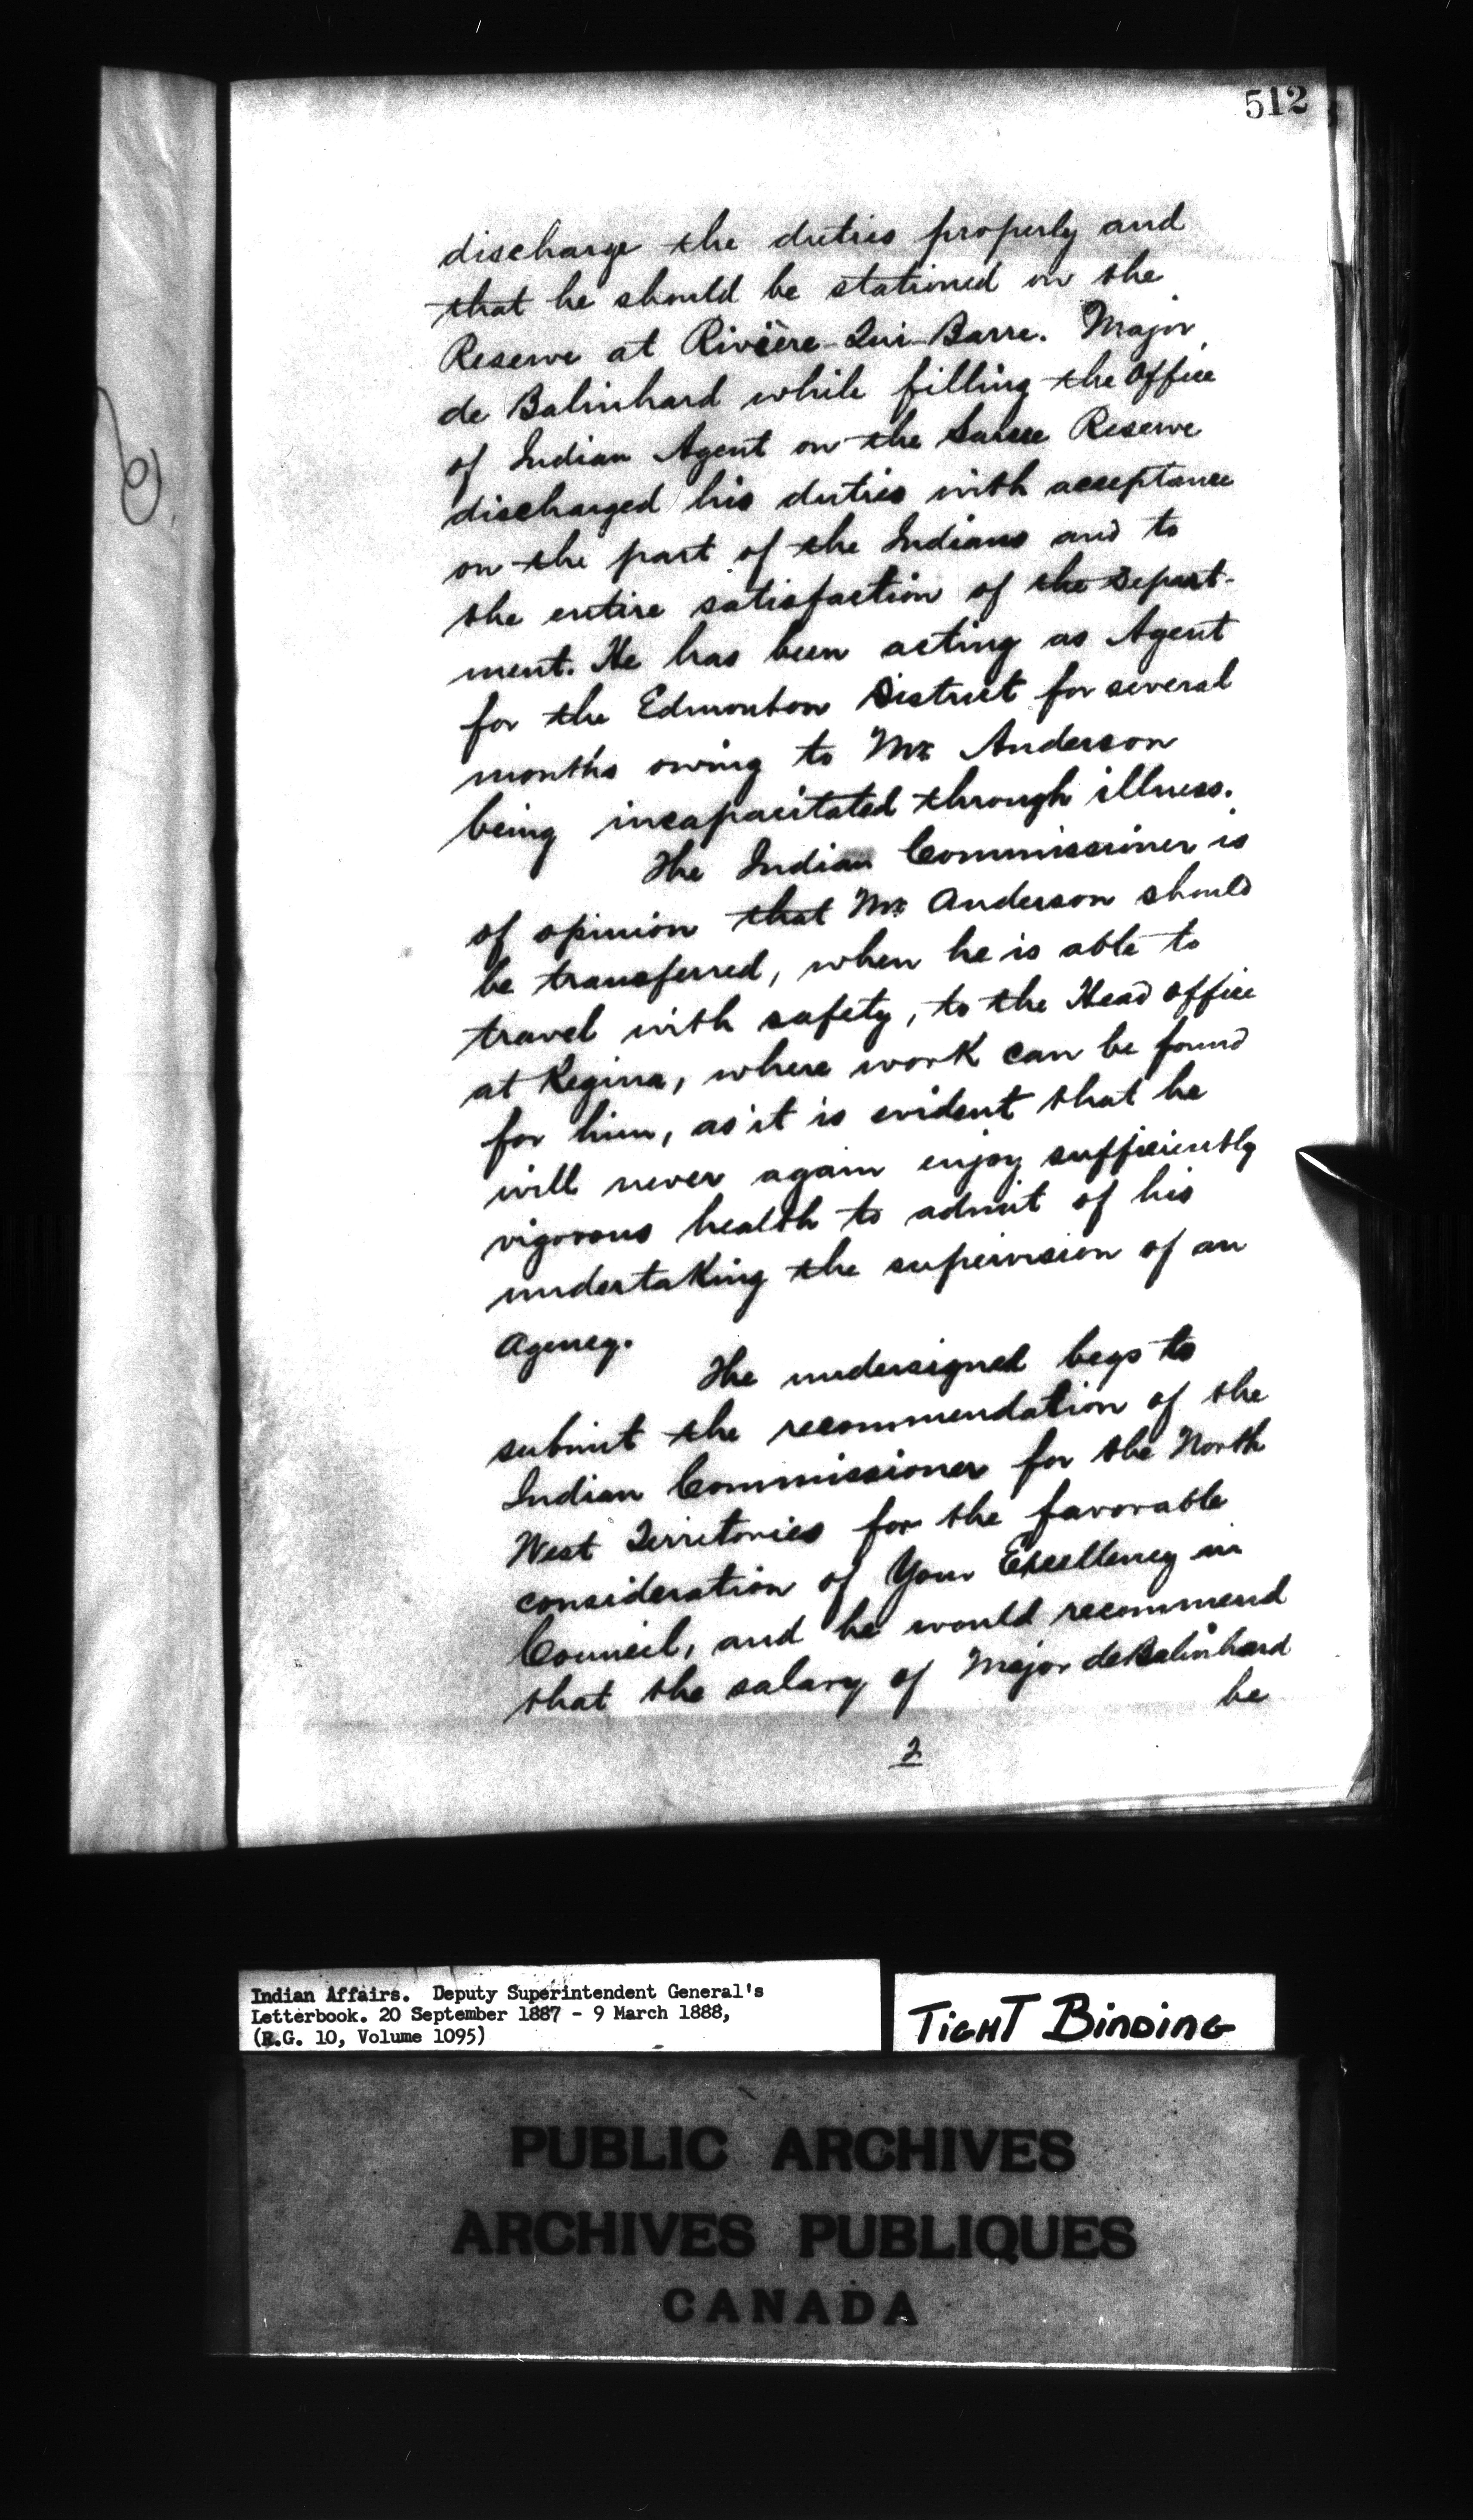 512
discharge the duties properly and
that he should be stationed on the
Reserve at Rivière-Qui-Barre. Major
de Balinhard while filling the Office
of Indian Agent on the Sarcee Reserve
discharged his duties with acceptance
on the part of the Indians and to
the entire satisfaction of the Depart-
ment. He has been acting as Agent
for the Edmonton District for several
months owing to Mr. Anderson
being incapacitated through illness.
The Indian Commissioner is
of opinion that Mr. Anderson should
be transferred, when he is able to
travel with safety, to the Head Office
at Regina, where work can be found
for him, as it is evident that he
will never again enjoy sufficiently
vigorous health to admit of his
undertaking the supervision of an
Agency.
The undersigned begs to
submit the recommendation of the
Indian Commissioner for the North
West Territories for the favorable
consideration of Your Excellency in
Council, and he would recommend
that the salary of Major de Balinhard
be
2
Indian Affairs. Deputy Superintendent General's
Letterbook. 20 September 1887 - 9 March 1888,
(R.G. 10, Volume 1095)
TIGHT BINDING
PUBLIC ARCHIVES
ARCHIVES PUBLIQUES
CANADA